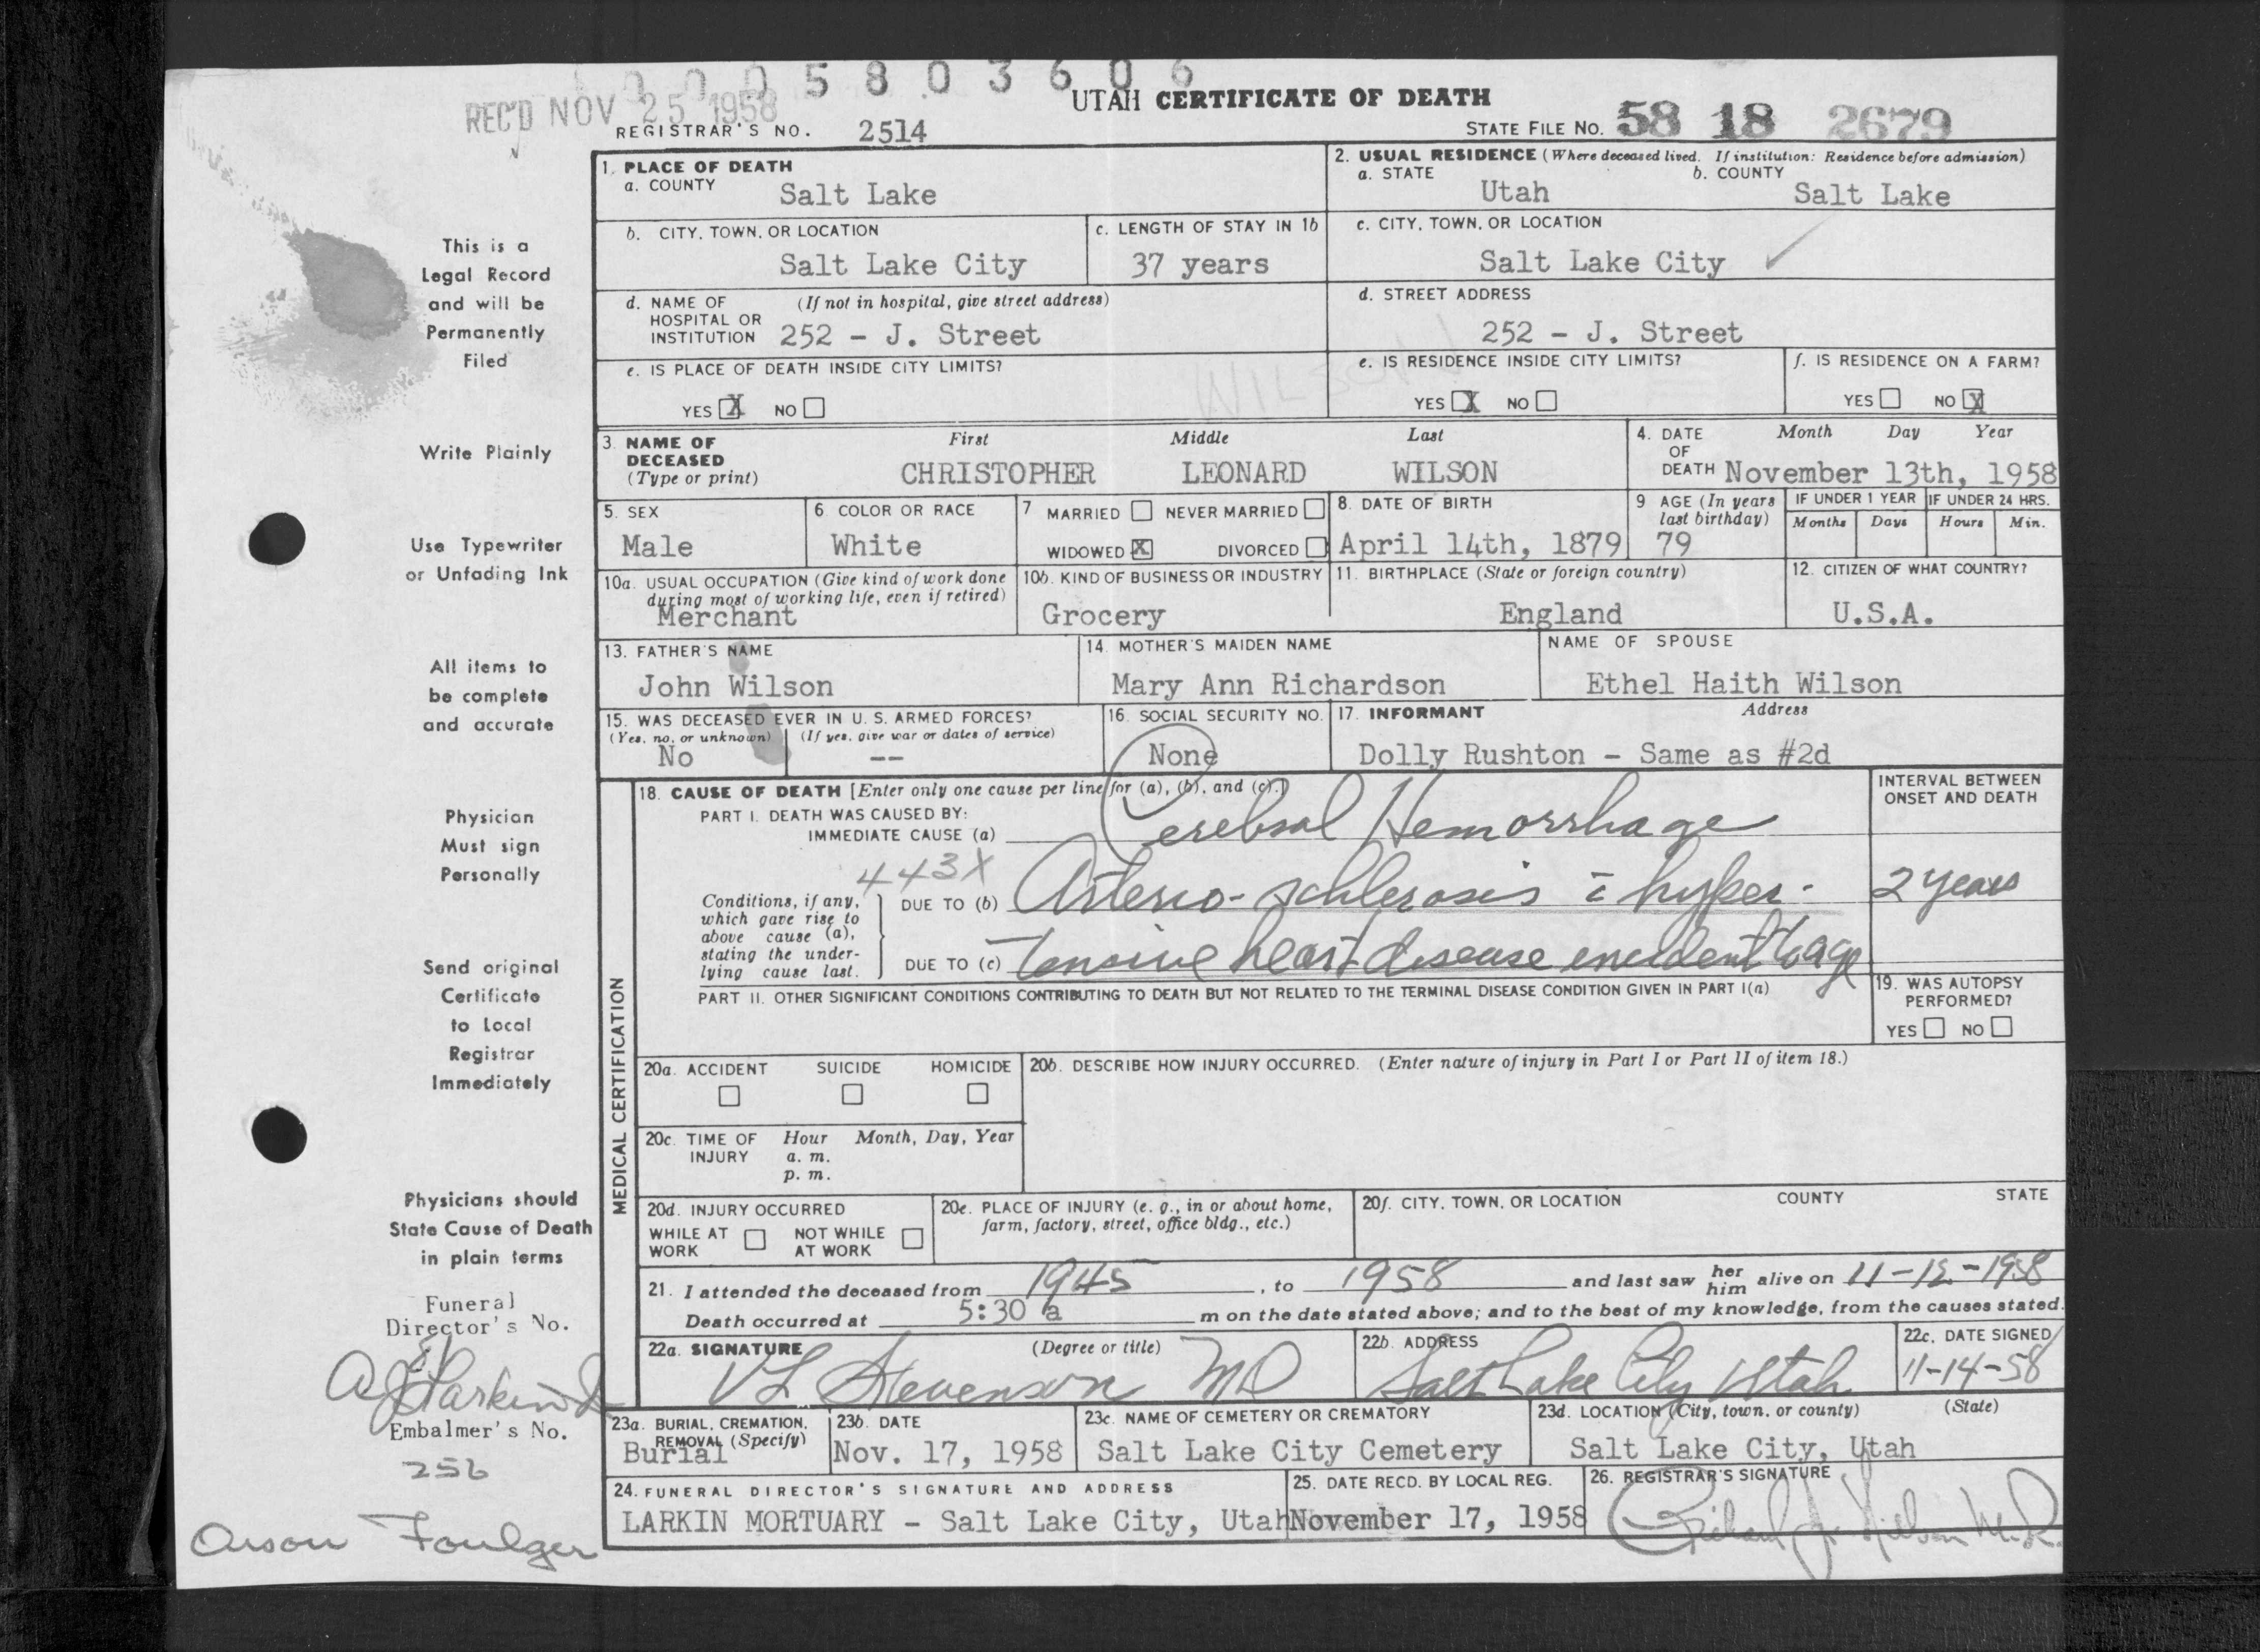 0005803606
REC'D NOV 25 1958
UTAH CERTIFICATE OF DEATH
REGISTRAR'S NO. 2514
STATE FILE NO. 58 18 2679
This is a
Legal Record
and will be
Permanently
Filed
Write Plainly
Use Typewriter
or Unfading Ink
All items to
be complete
and accurate
Physician
Must sign
Personally
Send original
Certificate
to Local
Registrar
Immediately
Physicians should
State Cause of Death
in plain terms
Funeral
Director's No.
Embalmer's No.
256
Orson Foulger
1. PLACE OF DEATH
a. COUNTY Salt Lake
b. CITY, TOWN, OR LOCATION
Salt Lake City
c. LENGTH OF STAY IN 1b
37 years
d. NAME OF HOSPITAL OR INSTITUTION (If not in hospital, give street address)
252 - J. Street
e. IS PLACE OF DEATH INSIDE CITY LIMITS?
YES X NO
2. USUAL RESIDENCE (Where deceased lived. If institution: Residence before admission)
a. STATE Utah
b. COUNTY Salt Lake
c. CITY, TOWN, OR LOCATION
Salt Lake City
d. STREET ADDRESS
252 - J. Street
e. IS RESIDENCE INSIDE CITY LIMITS?
YES X NO
f. IS RESIDENCE ON A FARM?
YES NO X
WILSON
3. NAME OF DECEASED (Type or print)
First Middle Last
CHRISTOPHER LEONARD WILSON
4. DATE OF DEATH Month Day Year
November 13th, 1958
5. SEX
Male
6. COLOR OR RACE
White
7 MARRIED NEVER MARRIED
WIDOWED X DIVORCED
8. DATE OF BIRTH
April 14th, 1879
9 AGE (In years last birthday)
79
IF UNDER 1 YEAR IF UNDER 24 HRS.
Months Days Hours Min.
10a. USUAL OCCUPATION (Give kind of work done during most of working life, even if retired)
Merchant
10b. KIND OF BUSINESS OR INDUSTRY
Grocery
11. BIRTHPLACE (State or foreign country)
England
12. CITIZEN OF WHAT COUNTRY?
U.S.A.
13. FATHER'S NAME
John Wilson
14. MOTHER'S MAIDEN NAME
Mary Ann Richardson
NAME OF SPOUSE
Ethel Haith Wilson
15. WAS DECEASED EVER IN U. S. ARMED FORCES?
(Yes, no, or unknown) (If yes, give war or dates of service)
No --
16. SOCIAL SECURITY NO.
None
17. INFORMANT Address
Dolly Rushton - Same as #2d
MEDICAL CERTIFICATION
18. CAUSE OF DEATH [Enter only one cause per line for (a), (b), and (c).]
PART I. DEATH WAS CAUSED BY:
IMMEDIATE CAUSE (a) Cerebral Hemorrhage
443X
Conditions, if any, which gave rise to above cause (a), stating the underlying cause last.
DUE TO (b) Arterio-schlerosis c̄ hyper-
DUE TO (c) tensive heart disease encident to age
INTERVAL BETWEEN ONSET AND DEATH
2 years
PART II. OTHER SIGNIFICANT CONDITIONS CONTRIBUTING TO DEATH BUT NOT RELATED TO THE TERMINAL DISEASE CONDITION GIVEN IN PART I(a)
19. WAS AUTOPSY PERFORMED?
YES NO
20a. ACCIDENT SUICIDE HOMICIDE
20b. DESCRIBE HOW INJURY OCCURRED. (Enter nature of injury in Part I or Part II of item 18.)
20c. TIME OF INJURY Hour Month, Day, Year
a. m.
p. m.
20d. INJURY OCCURRED
WHILE AT WORK NOT WHILE AT WORK
20e. PLACE OF INJURY (e. g., in or about home, farm, factory, street, office bldg., etc.)
20f. CITY, TOWN, OR LOCATION COUNTY STATE
21. I attended the deceased from 1945, to 1958 and last saw her him alive on 11-12-1958
Death occurred at 5:30 a m on the date stated above; and to the best of my knowledge, from the causes stated.
22a. SIGNATURE (Degree or title)
VL Stevenson MD
22b. ADDRESS
Salt Lake City Utah
22c. DATE SIGNED
11-14-58
23a. BURIAL, CREMATION, REMOVAL (Specify)
Burial
23b. DATE
Nov. 17, 1958
23c. NAME OF CEMETERY OR CREMATORY
Salt Lake City Cemetery
23d. LOCATION (City, town, or county) (State)
Salt Lake City, Utah
24. FUNERAL DIRECTOR'S SIGNATURE AND ADDRESS
LARKIN MORTUARY - Salt Lake City, Utah
25. DATE RECD. BY LOCAL REG.
November 17, 1958
26. REGISTRAR'S SIGNATURE